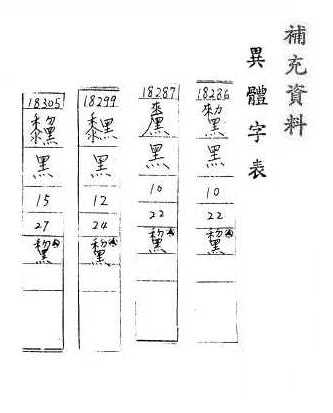 補充資料
異體字表
18286
黑
10
22
黧
18287
黑
10
22
黧
18299
黑
12
24
黧
18305
黑
15
27
黧